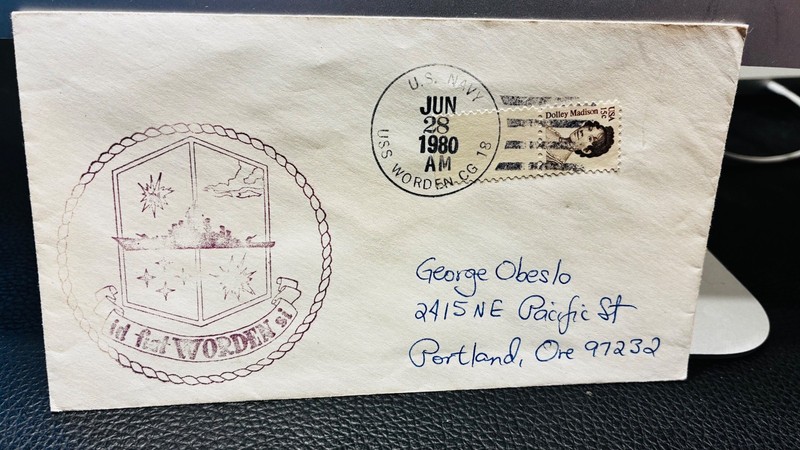 U.S. NAVY
JUN
28
1980
AM
USS WORDEN CG 18
Dolley Madison
USA 15c
id WORDEN si
George Obeslo
2415 NE Pacific St
Portland, Ore 97232